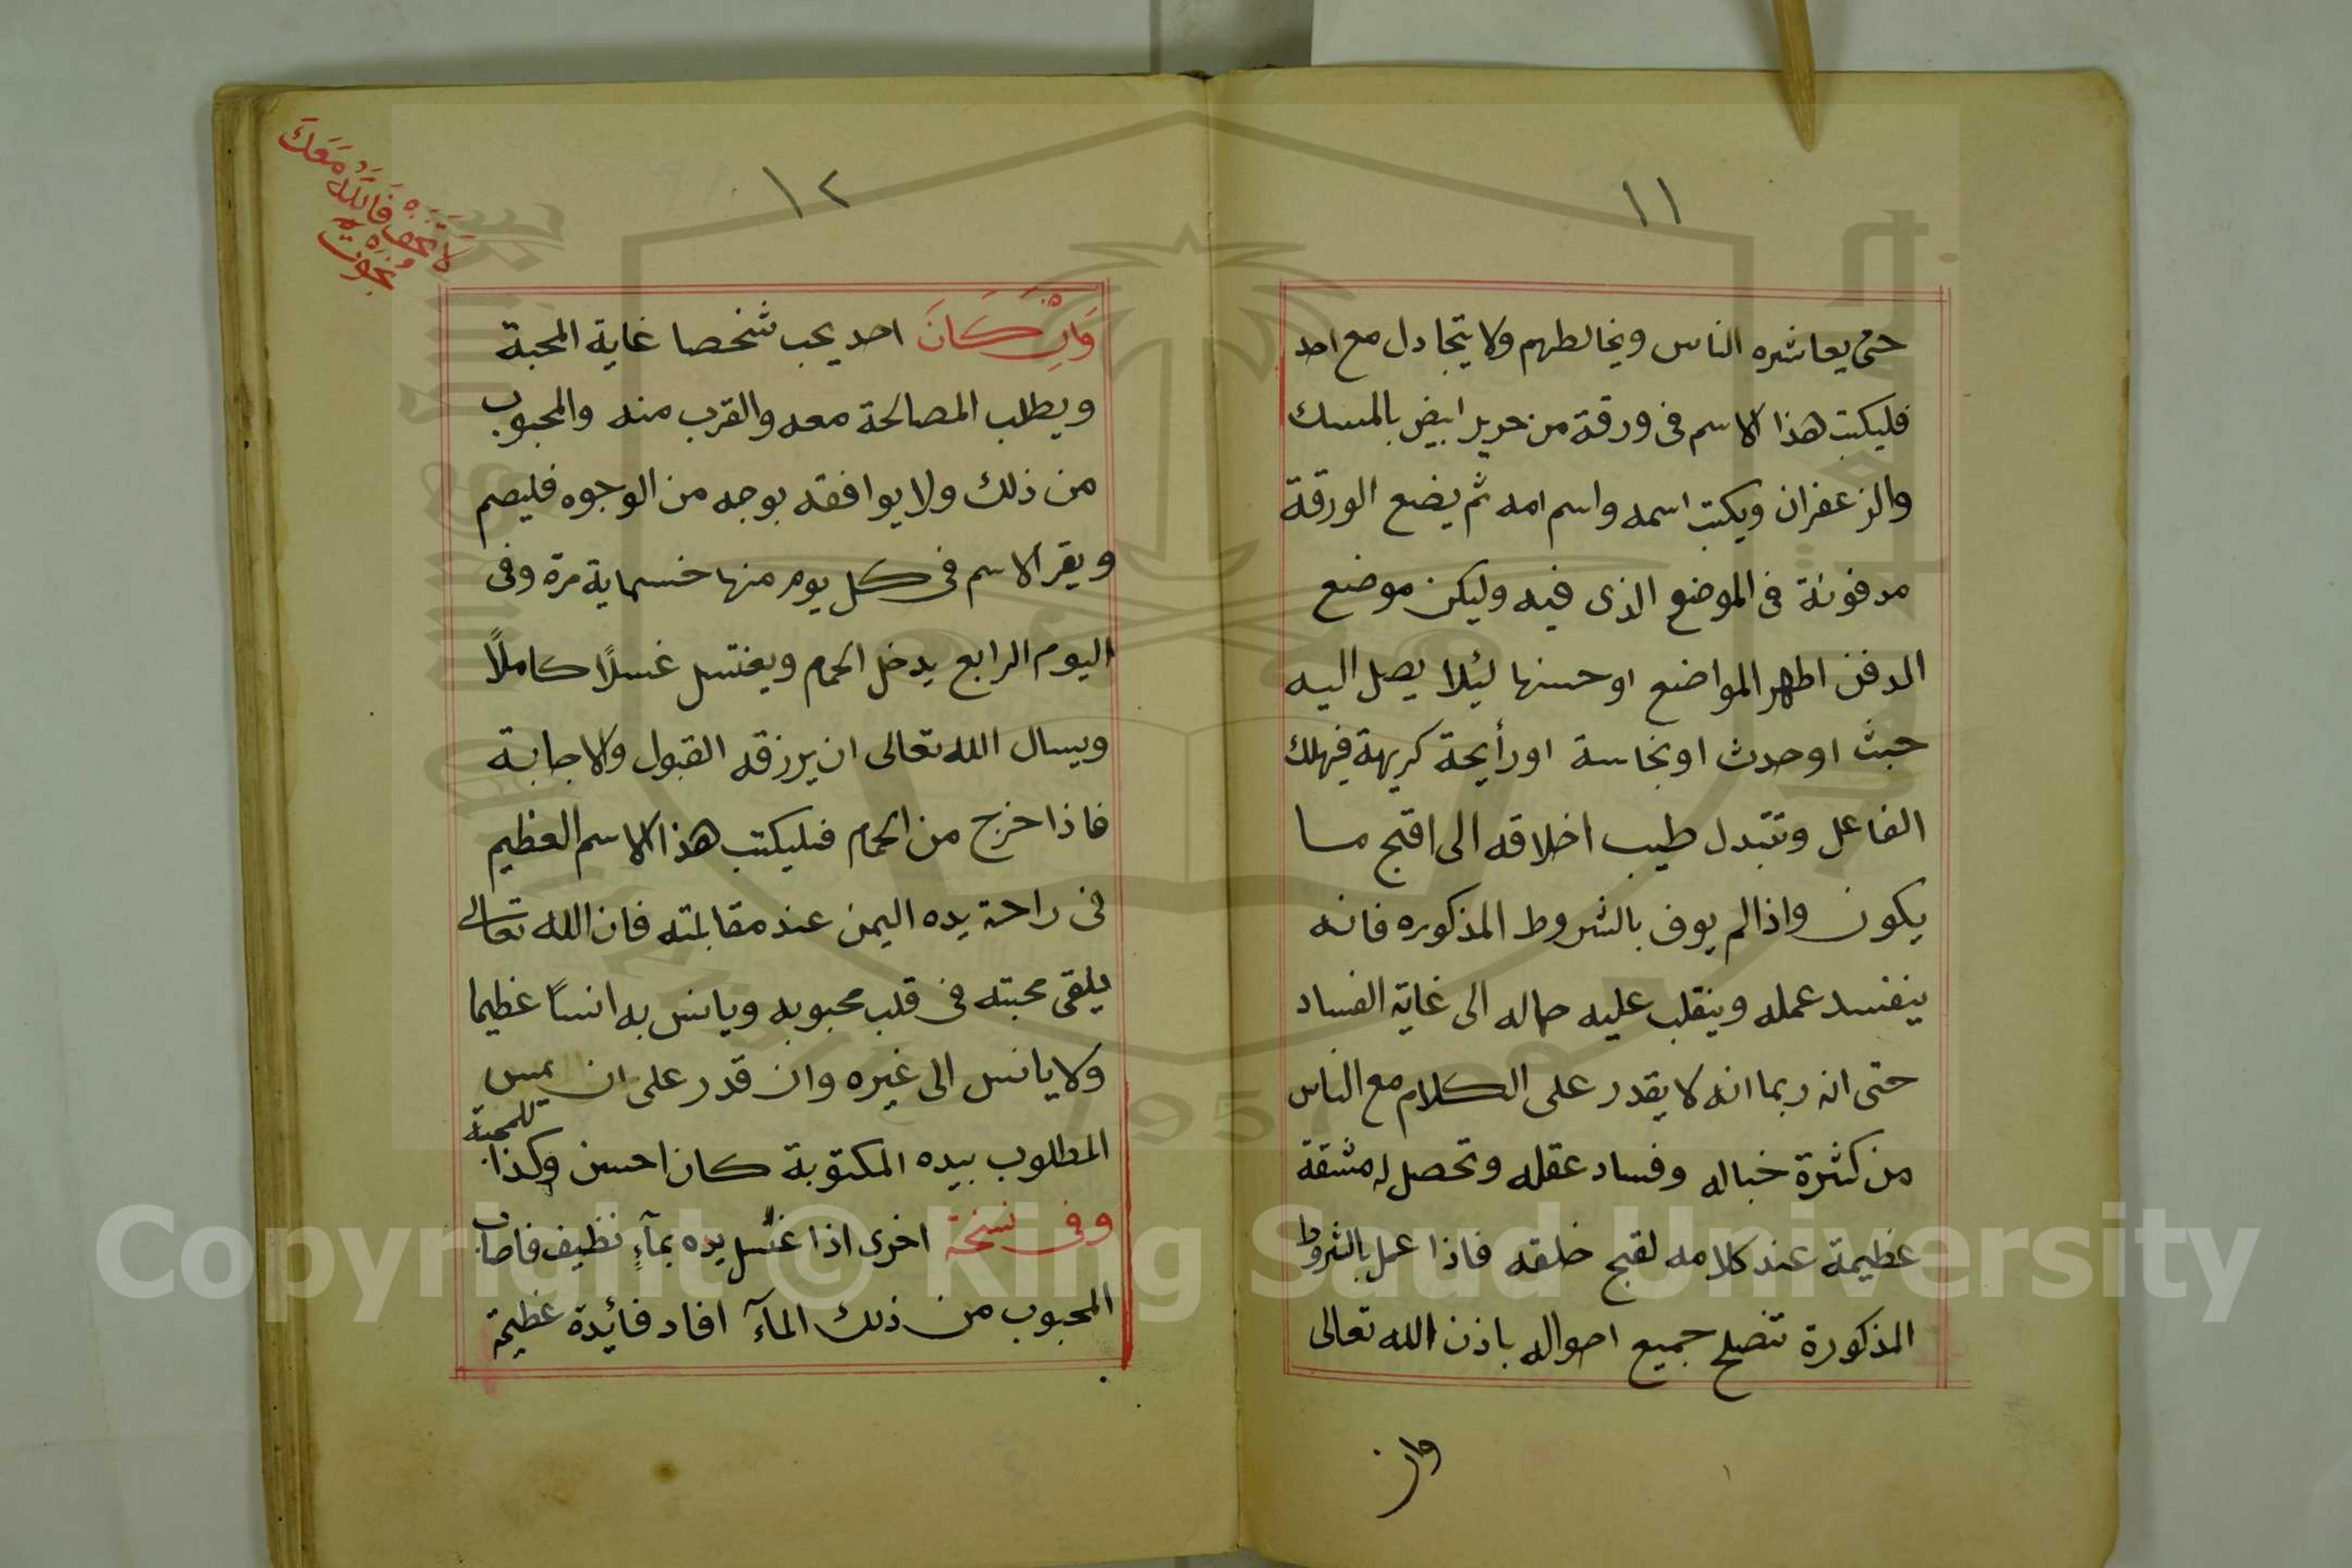 ١١
حتى يعاشره الناس ويخالطهم ولا يتجادل مع احد
فليكتب هذا الاسم فى ورقة من حرير ابيض بالمسك
والزعفران ويكتب اسمه واسم امه ثم يضع الورقة
مدفونة فى الموضع الذى فيه وليكن موضع
الدفن اطهر المواضع او حسنها ليُلا يصل اليه
خبث او حدث او نجاسة او رأيحة كريهة فيهلك
الفاعل وتتبدل طيب اخلاقه الى اقبح ما
يكون واذا لم يوف بالشروط المذكوره فانه
ينفسد عمله وينقلب عليه حاله الى غاية الفساد
حتى انه ربما انه لا يقدر على الكلام مع الناس
من كثرة خباله وفساد عقله وتحصل له مشقة
عظيمة عند كلامه لقبح خلقه فاذا عمل بالشروط
المذكورة تنصلح جميع احواله باذن الله تعالى
وان
١٢
لَا تَخَفْ فَاللَّهُ مَعَكَ
وَإِنْ كَانَ احد يحب شخصا غاية المحبة
ويطلب المصالحة معه والقرب منه والمحبوب
من ذلك ولا يوافقه بوجه من الوجوه فليصم
ويقر الاسم فى كل يوم منها خسماية مرة وفى
اليوم الرابع يدخل الحمام ويغتسل غسلًا كاملًا
ويسال الله تعالى ان يرزقه القبول والاجابة
فاذا خرج من الحمام فليكتب هذا الاسم العظيم
فى راحة يده اليمن عند مقابلته فان الله تعالى
يلقى محبته فى قلب محبوبه ويانس به انسًا عظيما
ولا يانس الى غيره وان قدر على ان يمس
المطلوب بيده المكتوبة كان احسن وكذا للمحبة
وفى نسخة اخرى اذا غسل يده بمآءٍ نظيف فاصاب
المحبوب من ذلك المآء افاد فائدة عظيمة
Copyright © King Saud University
1957